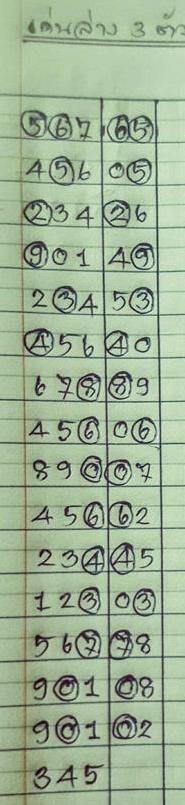 เด่นล่าง 3 ตัว
567 65
456 05
234 26
901 49
234 53
456 40
678 89
456 06
890 07
456 62
234 45
123 03
567 78
901 08
901 02
345